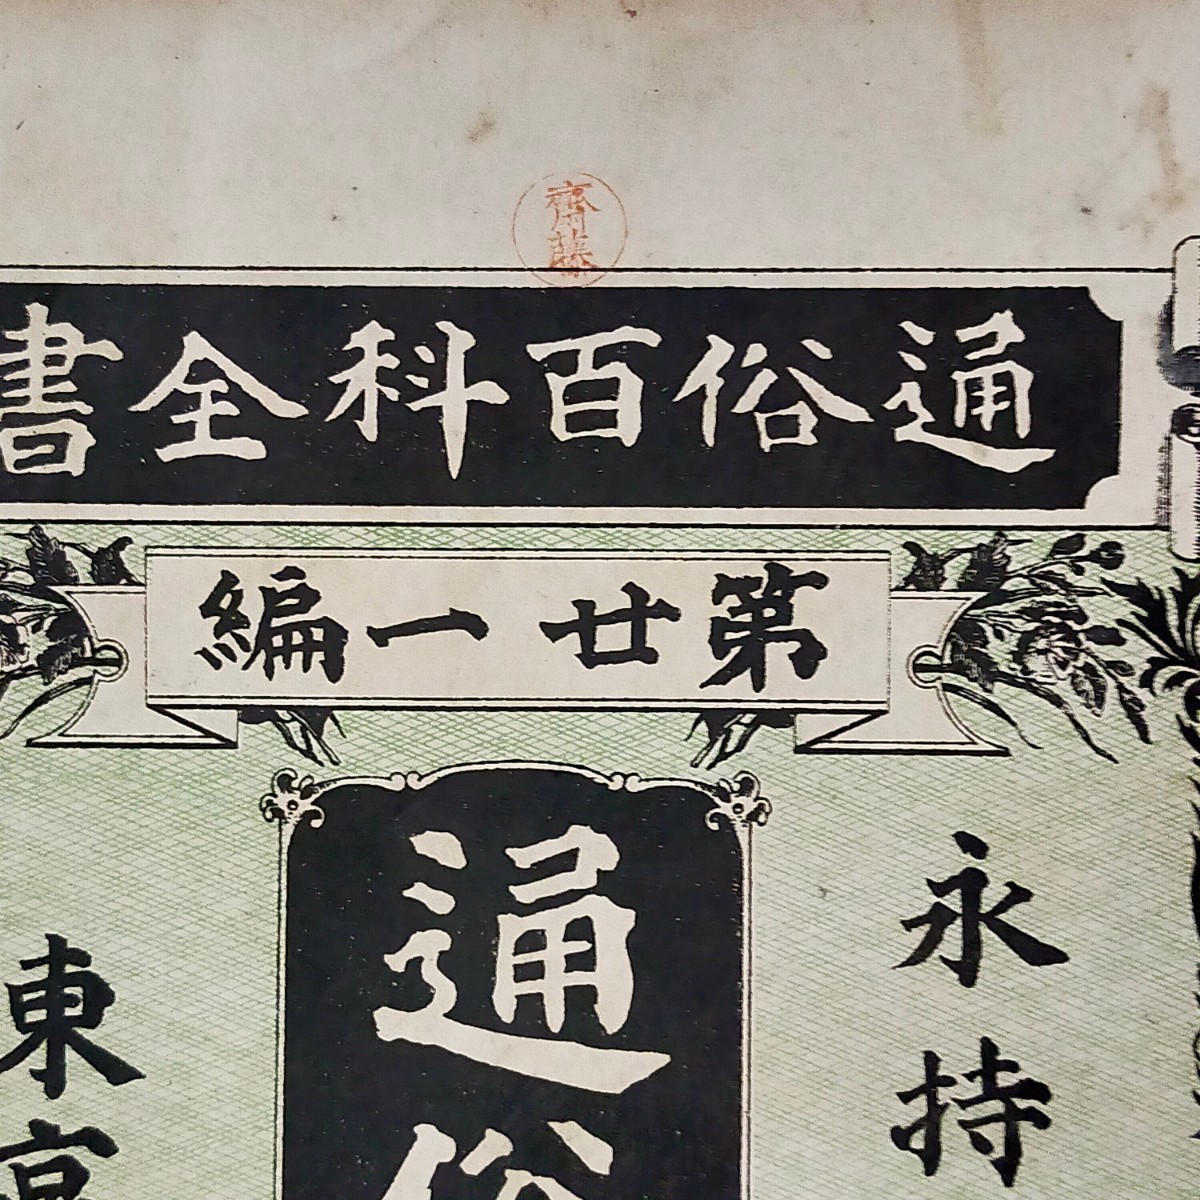 齋藤
通俗百科全書
第廿一編
永持
通俗
東京